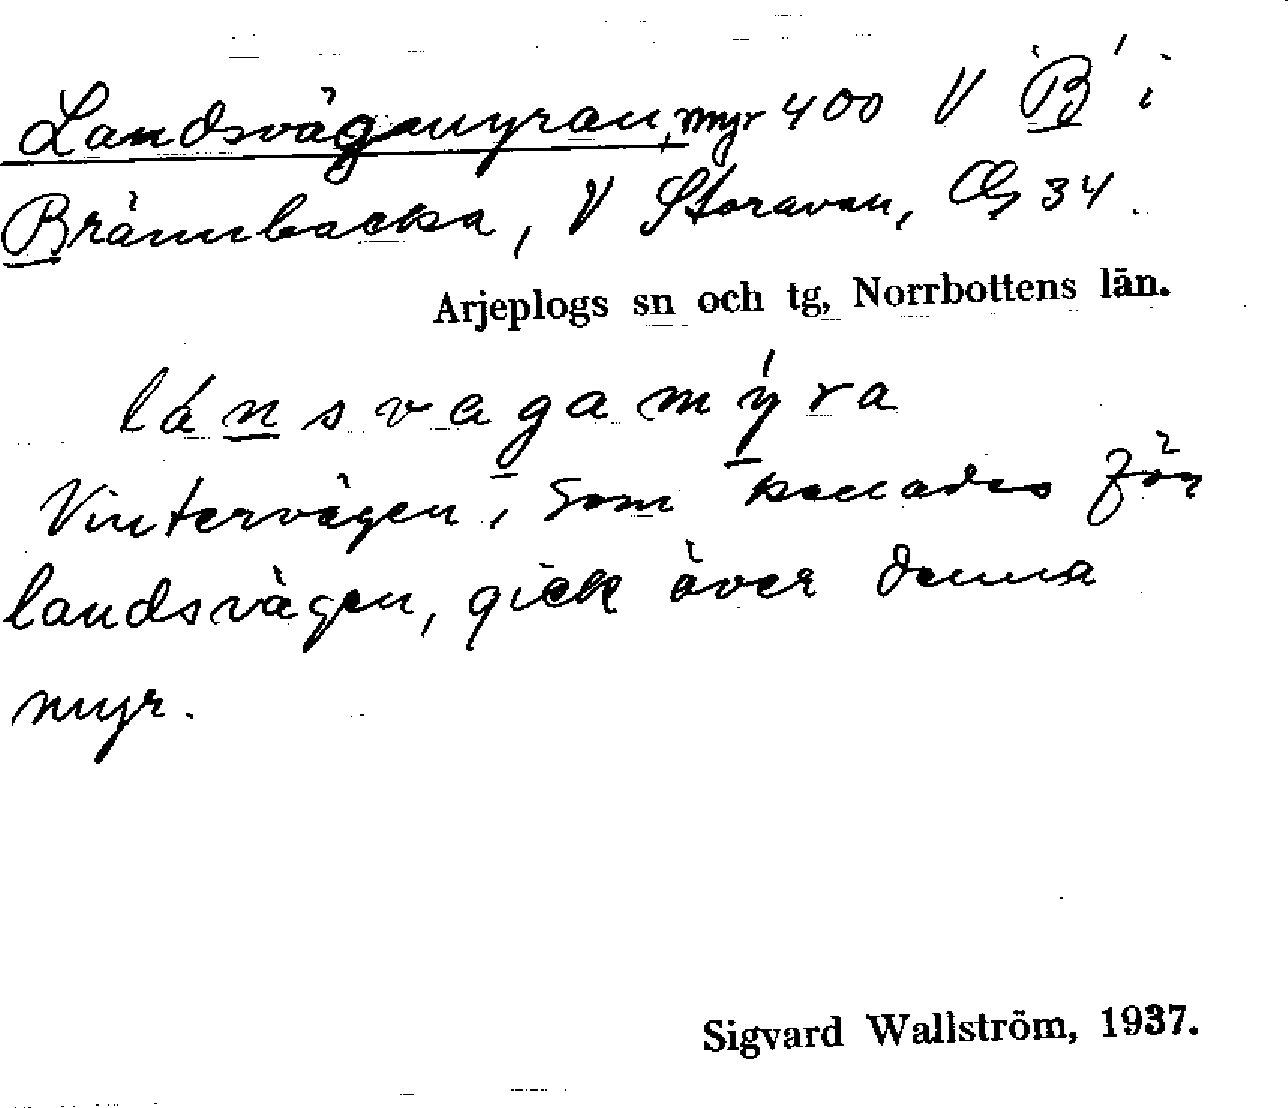 Landsvägsmyran, myr 400 V 'B' i
Brännbacka, V Storavan, CG 34.
Arjeplogs sn och tg, Norrbottens län.
lánsvagamýra
Vintervägen, som kallades för
landsvägen, gick över denna
myr.
Sigvard Wallström, 1937.